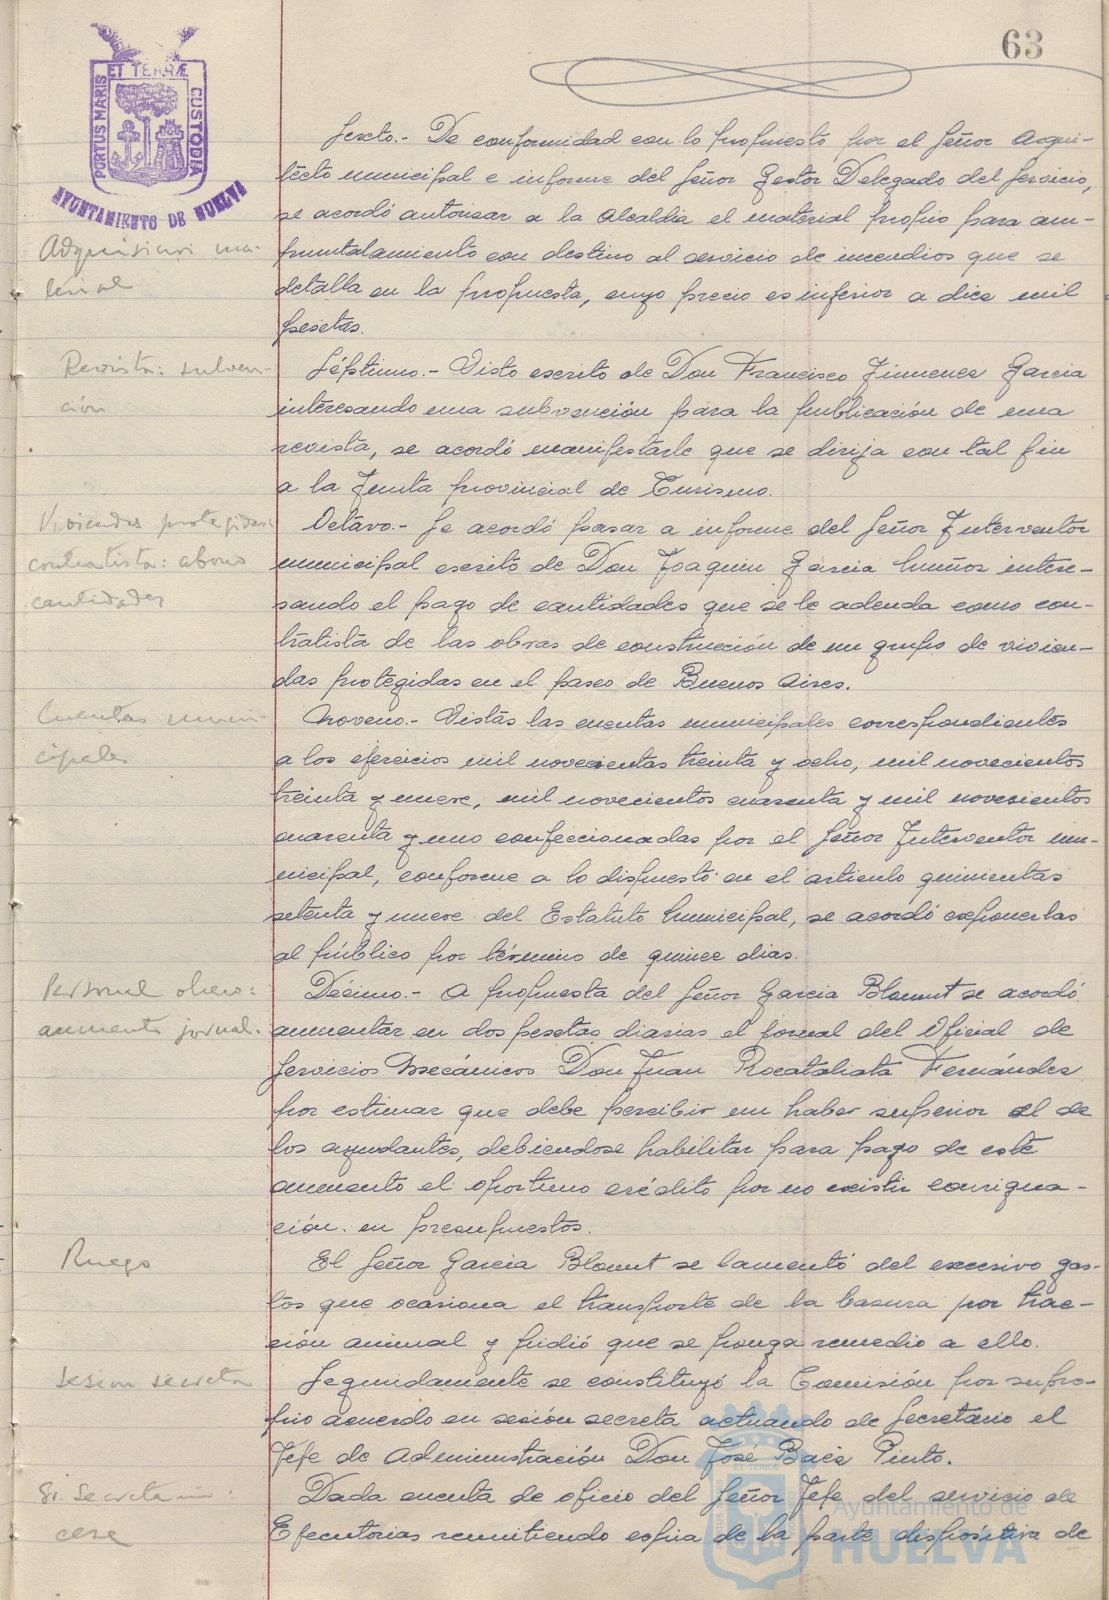 63
PORTUS MARIS
ET TERRÆ
CUSTODIA
AYUNTAMIENTO DE HUELVA
Sexto.- De conformidad con lo propuesto por el Señor Arqui-
tecto municipal e informe del Señor Gestor Delegado del Servicio,
se acordó autorizar a la Alcaldía el material propio para am-
Adquisicion ma-
puntalamiento con destino al servicio de incendios que se
terial
detalla en la propuesta, cuyo precio es inferior a diez mil
pesetas.
Revista: subven-
Séptimo.- Visto escrito de Don Francisco Jimenez Garcia
ción
interesando una subvención para la publicación de una
revista, se acordó manifestarle que se dirija con tal fin
a la Junta provincial de Turismo.
Viviendas protegidas:
Octavo.- Se acordó pasar a informe del Señor Interventor
contratista: abono
municipal escrito de Don Joaquin Garcia Muñoz intere-
cantidades
sando el pago de cantidades que se le adeuda como con-
tratista de las obras de construcción de un grupo de vivien-
das protegidas en el paseo de Buenos Aires.
Cuentas muni-
Noveno.- Vistas las cuentas municipales correspondientes
cipales
a los ejercicios mil novecientas treinta y ocho, mil novecientos
treinta y nueve, mil novecientos cuarenta y mil novecientos
cuarenta y uno confeccionadas por el Señor Interventor mu-
nicipal, conforme a lo dispuesto en el artículo quinientas
setenta y nueve del Estatuto Municipal, se acordó exponerlas
al público por término de quince dias.
Personal obrero:
Décimo.- A propuesta del Señor Garcia Blomut se acordó
aumento jornal.
aumentar en dos pesetas diarias el jornal del Oficial de
Servicios Mecánicos Don Juan Rocatallata Fernández
por estimar que debe percibir un haber superior al de
los ayudantes, debiendose habilitar para pago de este
aumento el oportuno crédito por no existir consigna-
ción en presupuestos.
Ruego
El Señor Garcia Blomut se lamentó del excesivo gas-
tos que ocasiona el transporte de la basura por trac-
ción animal y pidió que se ponga remedio a ello.
Sesion secreta
Seguidamente se constituyó la Comisión por su pro-
pio acuerdo en sesión secreta actuando de Secretario el
Jefe de Administración Don José Baéz Pinto.
Sr. Secretario:
Dada cuenta de oficio del Señor Jefe del servicio de
cese
Ejecutorias remitiendo copia de la parte dispositiva de
Ayuntamiento de
HUELVA